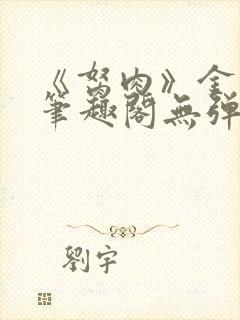 《胬肉》全
筆趣閣無弹
劉宇